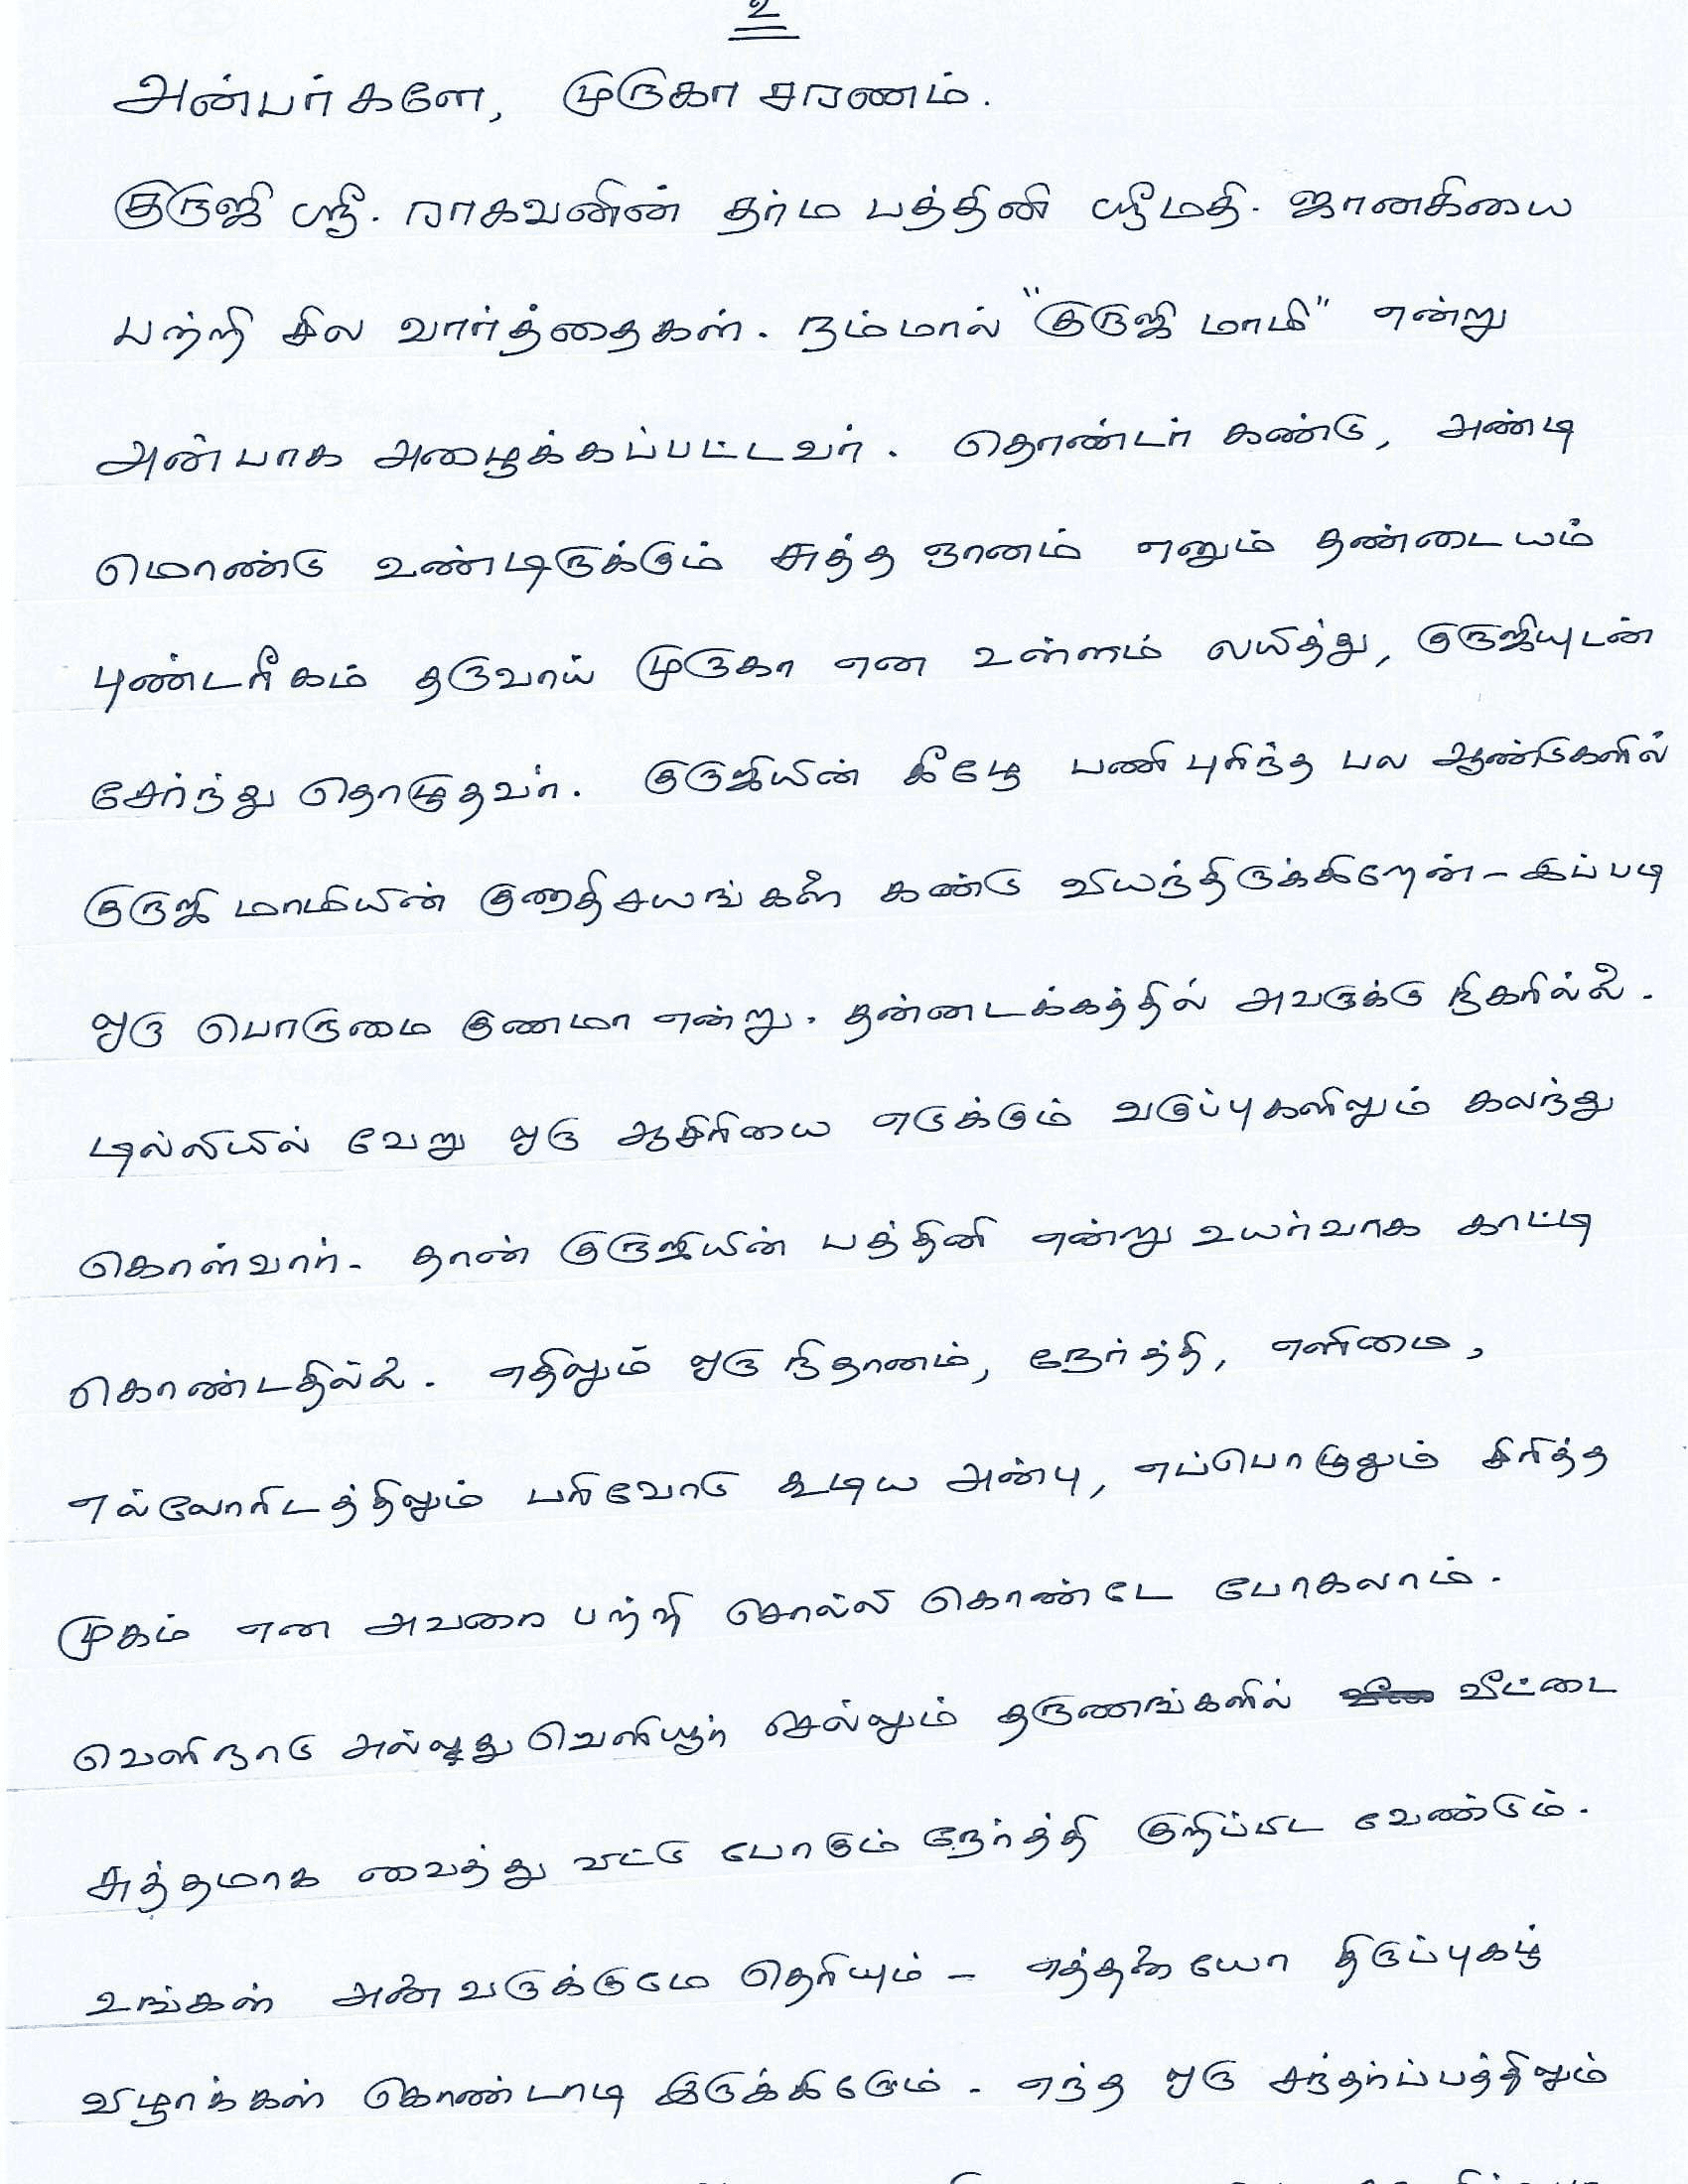 உ
அன்பர்களே, முருகா சரணம்.
குருஜி ஸ்ரீ. ராகவனின் தர்ம பத்தினி ஸ்ரீமதி. ஜானகியை
பற்றி சில வார்த்தைகள். நம்மால் "குருஜி மாமி" என்று
அன்பாக அழைக்கப்பட்டவர். தொண்டர் கண்டு, அண்டி
மொண்டு உண்டிருக்கும் சுத்த ஞானம் எனும் தண்டையம்
புண்டரீகம் தருவாய் முருகா என உள்ளம் லயித்து, குருஜியுடன்
சேர்ந்து தொழுதவர். குருஜியின் கீழே பணி புரிந்த பல ஆண்டுகளில்
குருஜி மாமியின் குணாதிசயங்களை கண்டு வியந்திருக்கிறேன் - இப்படி
ஒரு பொருமை குணமா என்று. தன்னடக்கத்தில் அவருக்கு நிகரில்லை.
டில்லியில் வேறு ஒரு ஆசிரியை எடுக்கும் வகுப்புகளிலும் கலந்து
கொள்வார். தான் குருஜியின் பத்தினி என்று உயர்வாக காட்டி
கொண்டதில்லை. எதிலும் ஒரு நிதானம், நேர்த்தி, எளிமை,
எல்லோரிடத்திலும் பரிவோடு கூடிய அன்பு, எப்பொழுதும் சிரித்த
முகம் என அவரை பற்றி சொல்லி கொண்டே போகலாம்.
வெளிநாடு அல்லது வெளியூர் செல்லும் தருணங்களில் வீட்டை
சுத்தமாக வைத்து விட்டு போகும் நேர்த்தி குறிப்பிட வேண்டும்.
உங்கள் அனைவருக்குமே தெரியும் - எத்தனையோ திருப்புகழ்
விழாக்கள் கொண்டாடி இருக்கிறோம். எந்த ஒரு சந்தர்ப்பத்திலும்